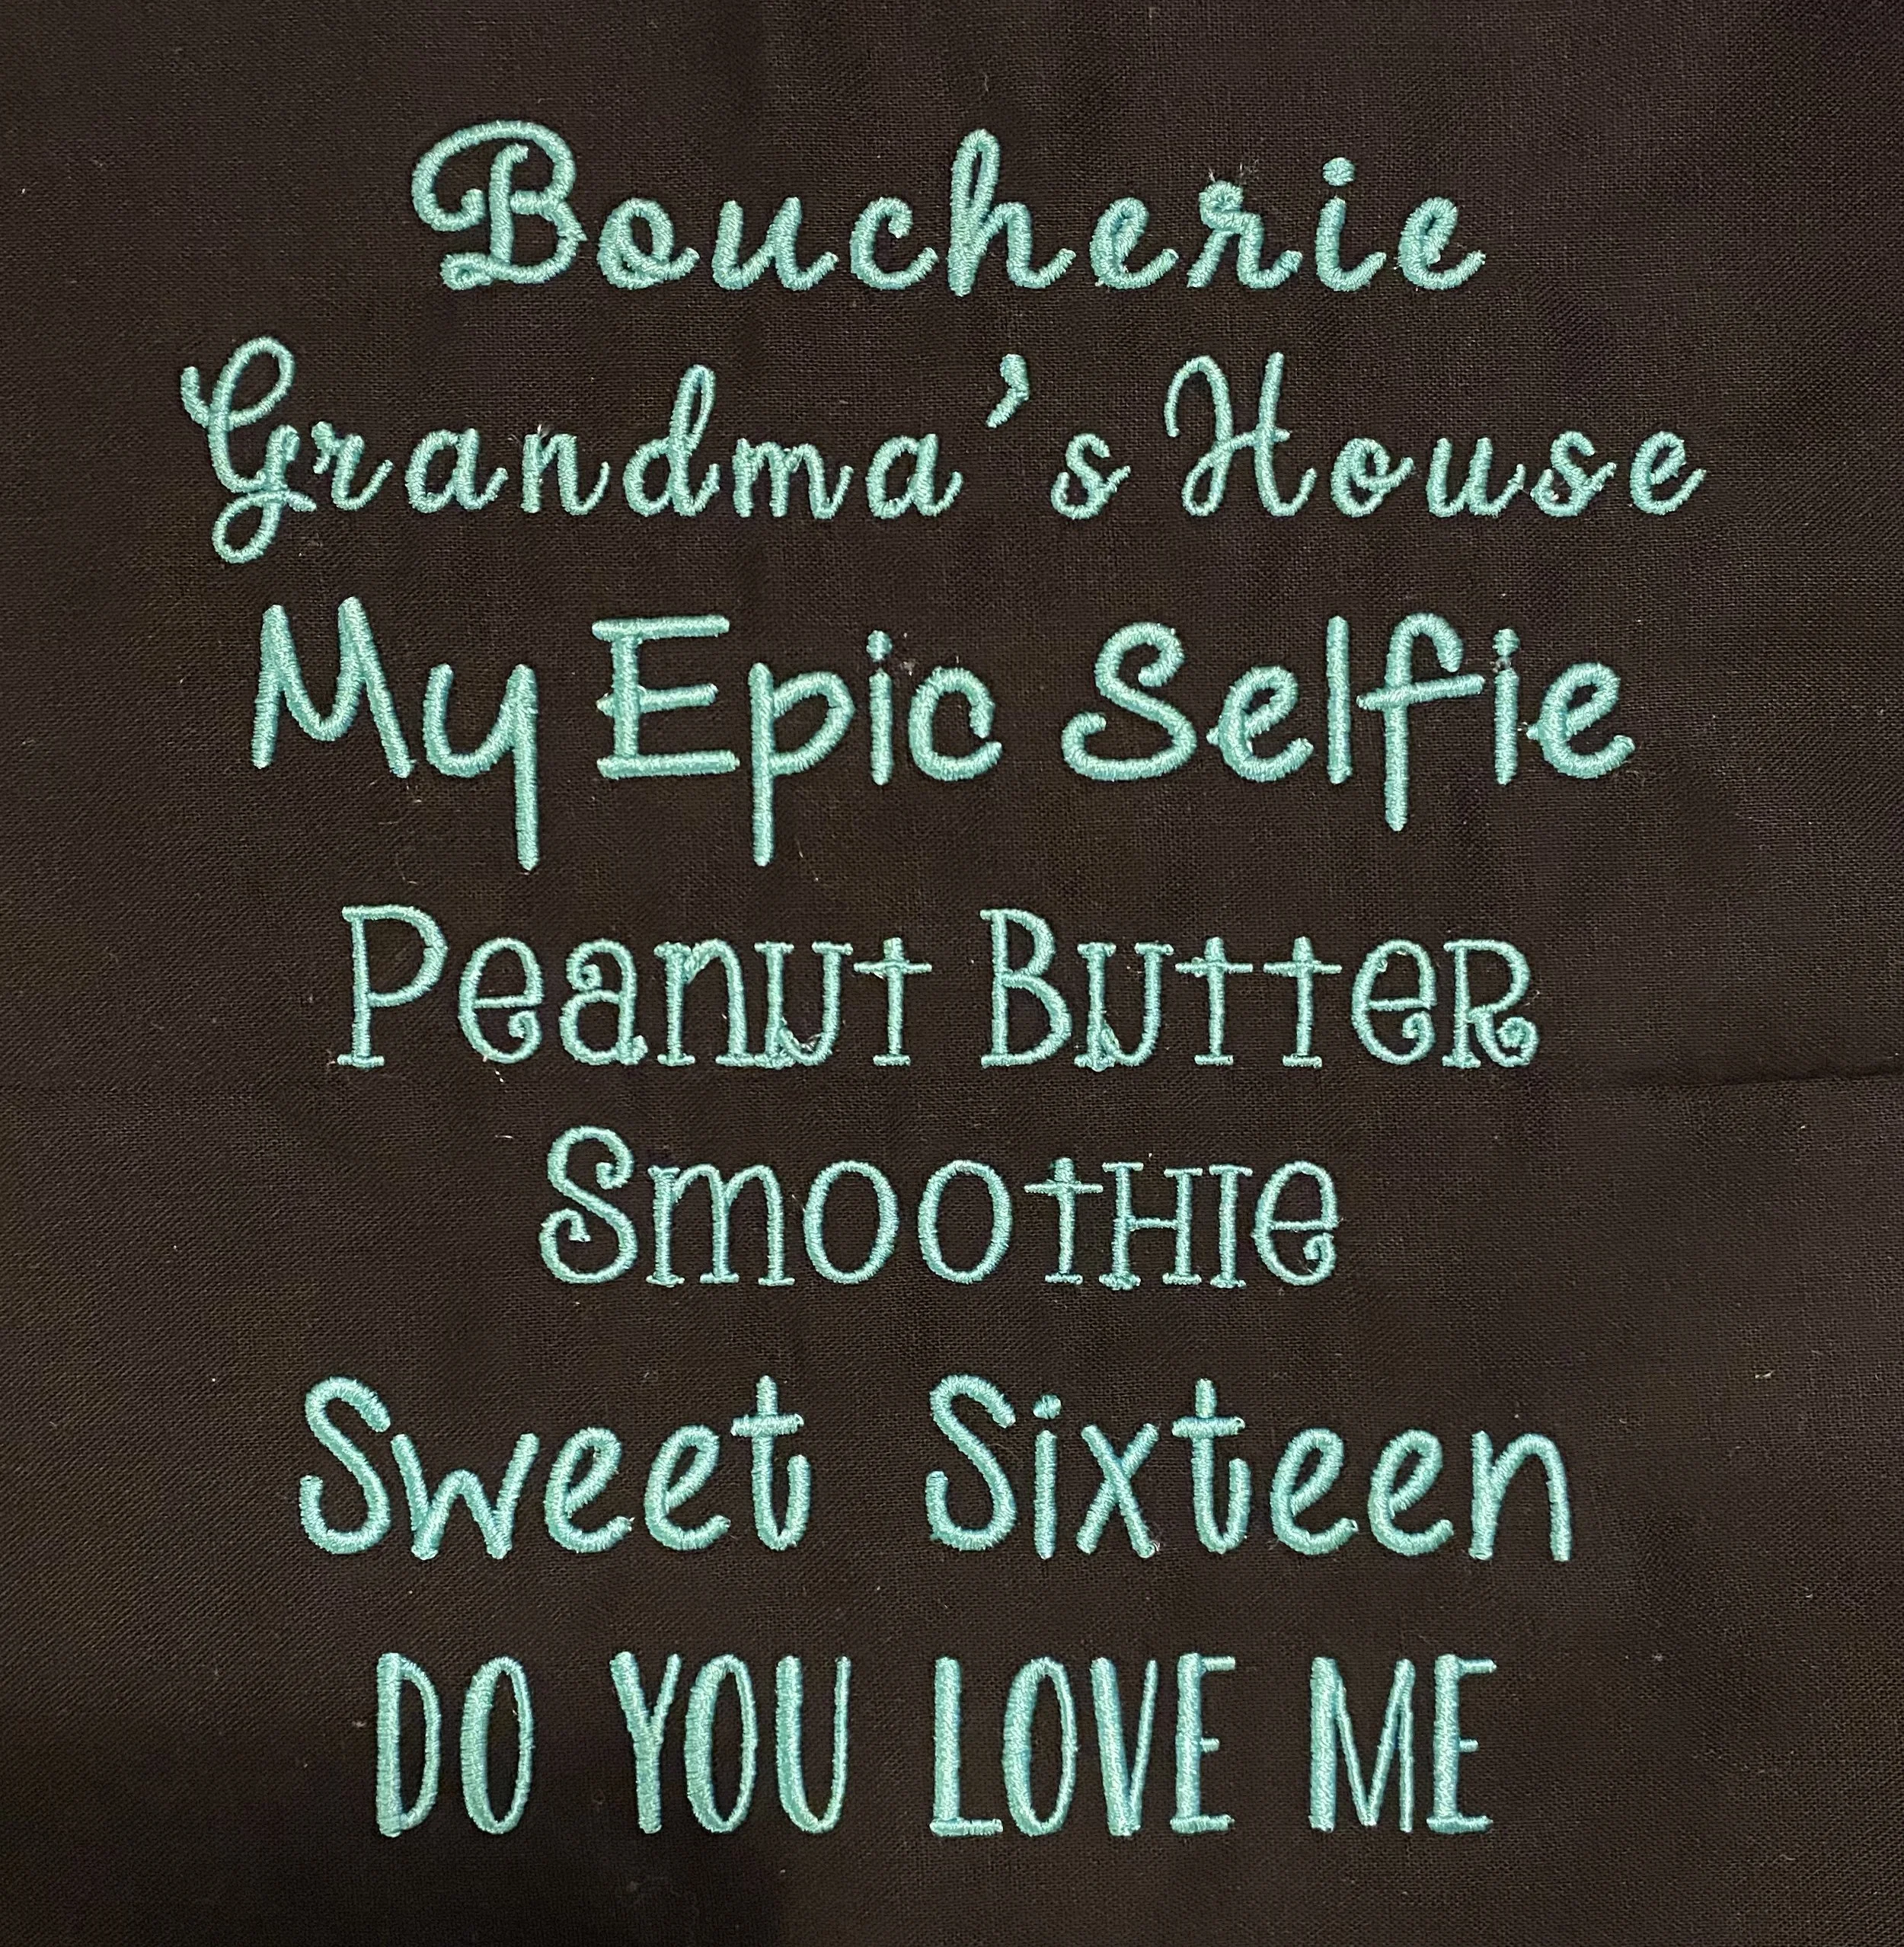 Boucherie
Grandma's House
My Epic Selfie
Peanut Butter
Smoothie
Sweet Sixteen
DO YOU LOVE ME